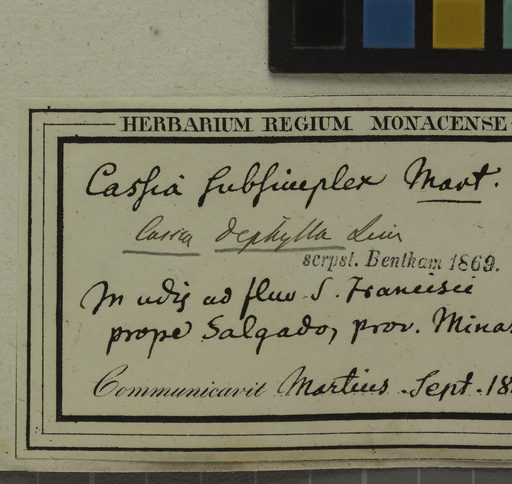 HERBARIUM REGIUM MONACENSE
Cassia subsimplex Mart.
Cassia diphylla Linn
scrpst. Bentham 1869.
In udis ad fluv. S. Francisci
prope Salgado, prov. Minas
Communicavit Martius. Sept. 18